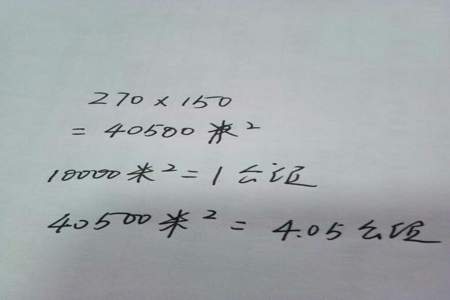 270×150
=40500米²
10000米²=1公顷
40500米²=4.05公顷